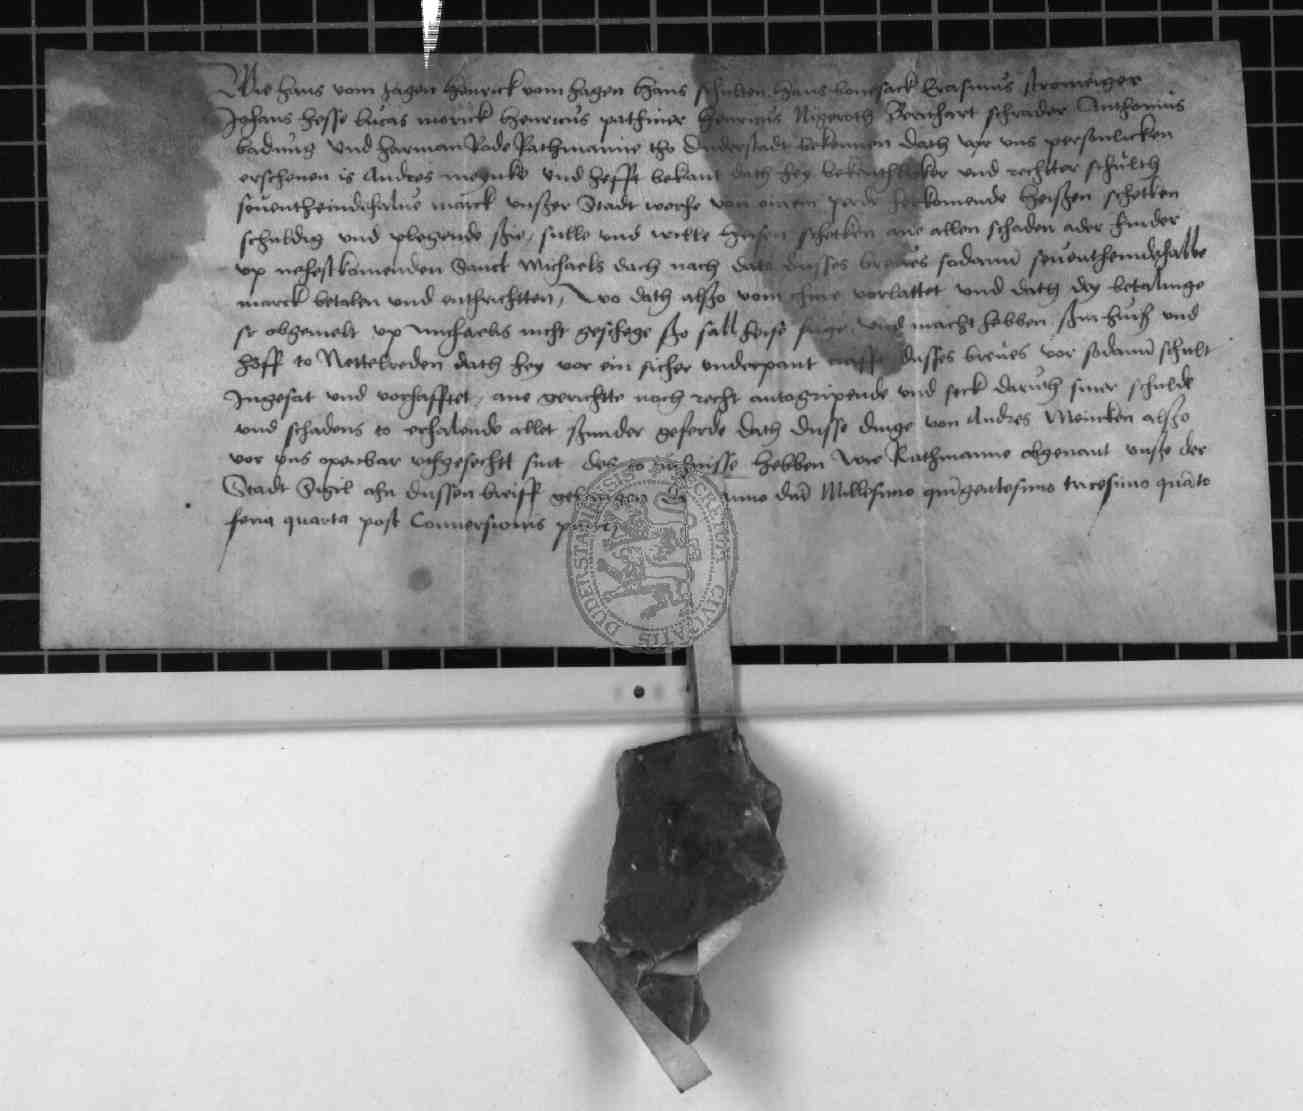 Wie hans vom hagen Henrick vom hagen Hans schulten Hans bonesack Erasmus stromeiger
Johans Hesse lucas morick Henricus pathiner Henricus Nigeroth Bernhart schrader Anthonius
und Harman Rode Rathmanne tho Duderstadt bekennen dath vor uns personlicken
erschenen is Andres meynke und hefft bekant dath hey bekenthliker und rechter schulth
seventheindehalve marck unszer Stadt worhe von einem perde herkomende Heiszen schotken
schuldig und plegende szie, sulle und wille Heisen schotken ane allen schaden ader hinder
up nehestkomenden Sanct Michaels dach nach data dusses breves sodann seventheindehalve
marck betalen und enthrichtten, Wo dath alszo vom ohme vorlattet und dath dey betalinge
so obgemelt up michaelis nicht geschege szo sall Heise fuge und macht hebben szin husz und
hoff to Nettelreden dath hey vor ein sicher underpant dusses breves vor sodann schult
Ingesat und vorhafftet, ane gerichtte noch recht antogripende und sick daruth siner schulde
und schadens to erhalende allet szunder geferde dath dusse dinge von Andres Meinken alszo
vor uns openbar uthgesechtt sint des to hebben wie Rathmanne obgenant unsze der
Stadt Sigil ahn dussen breiff gehangen anno dni Millesimo quingentesimo tricesimo quarto
feria quarta post Conversionis pauli
SECRETUM CIVITATIS DUDERSTATENSIS